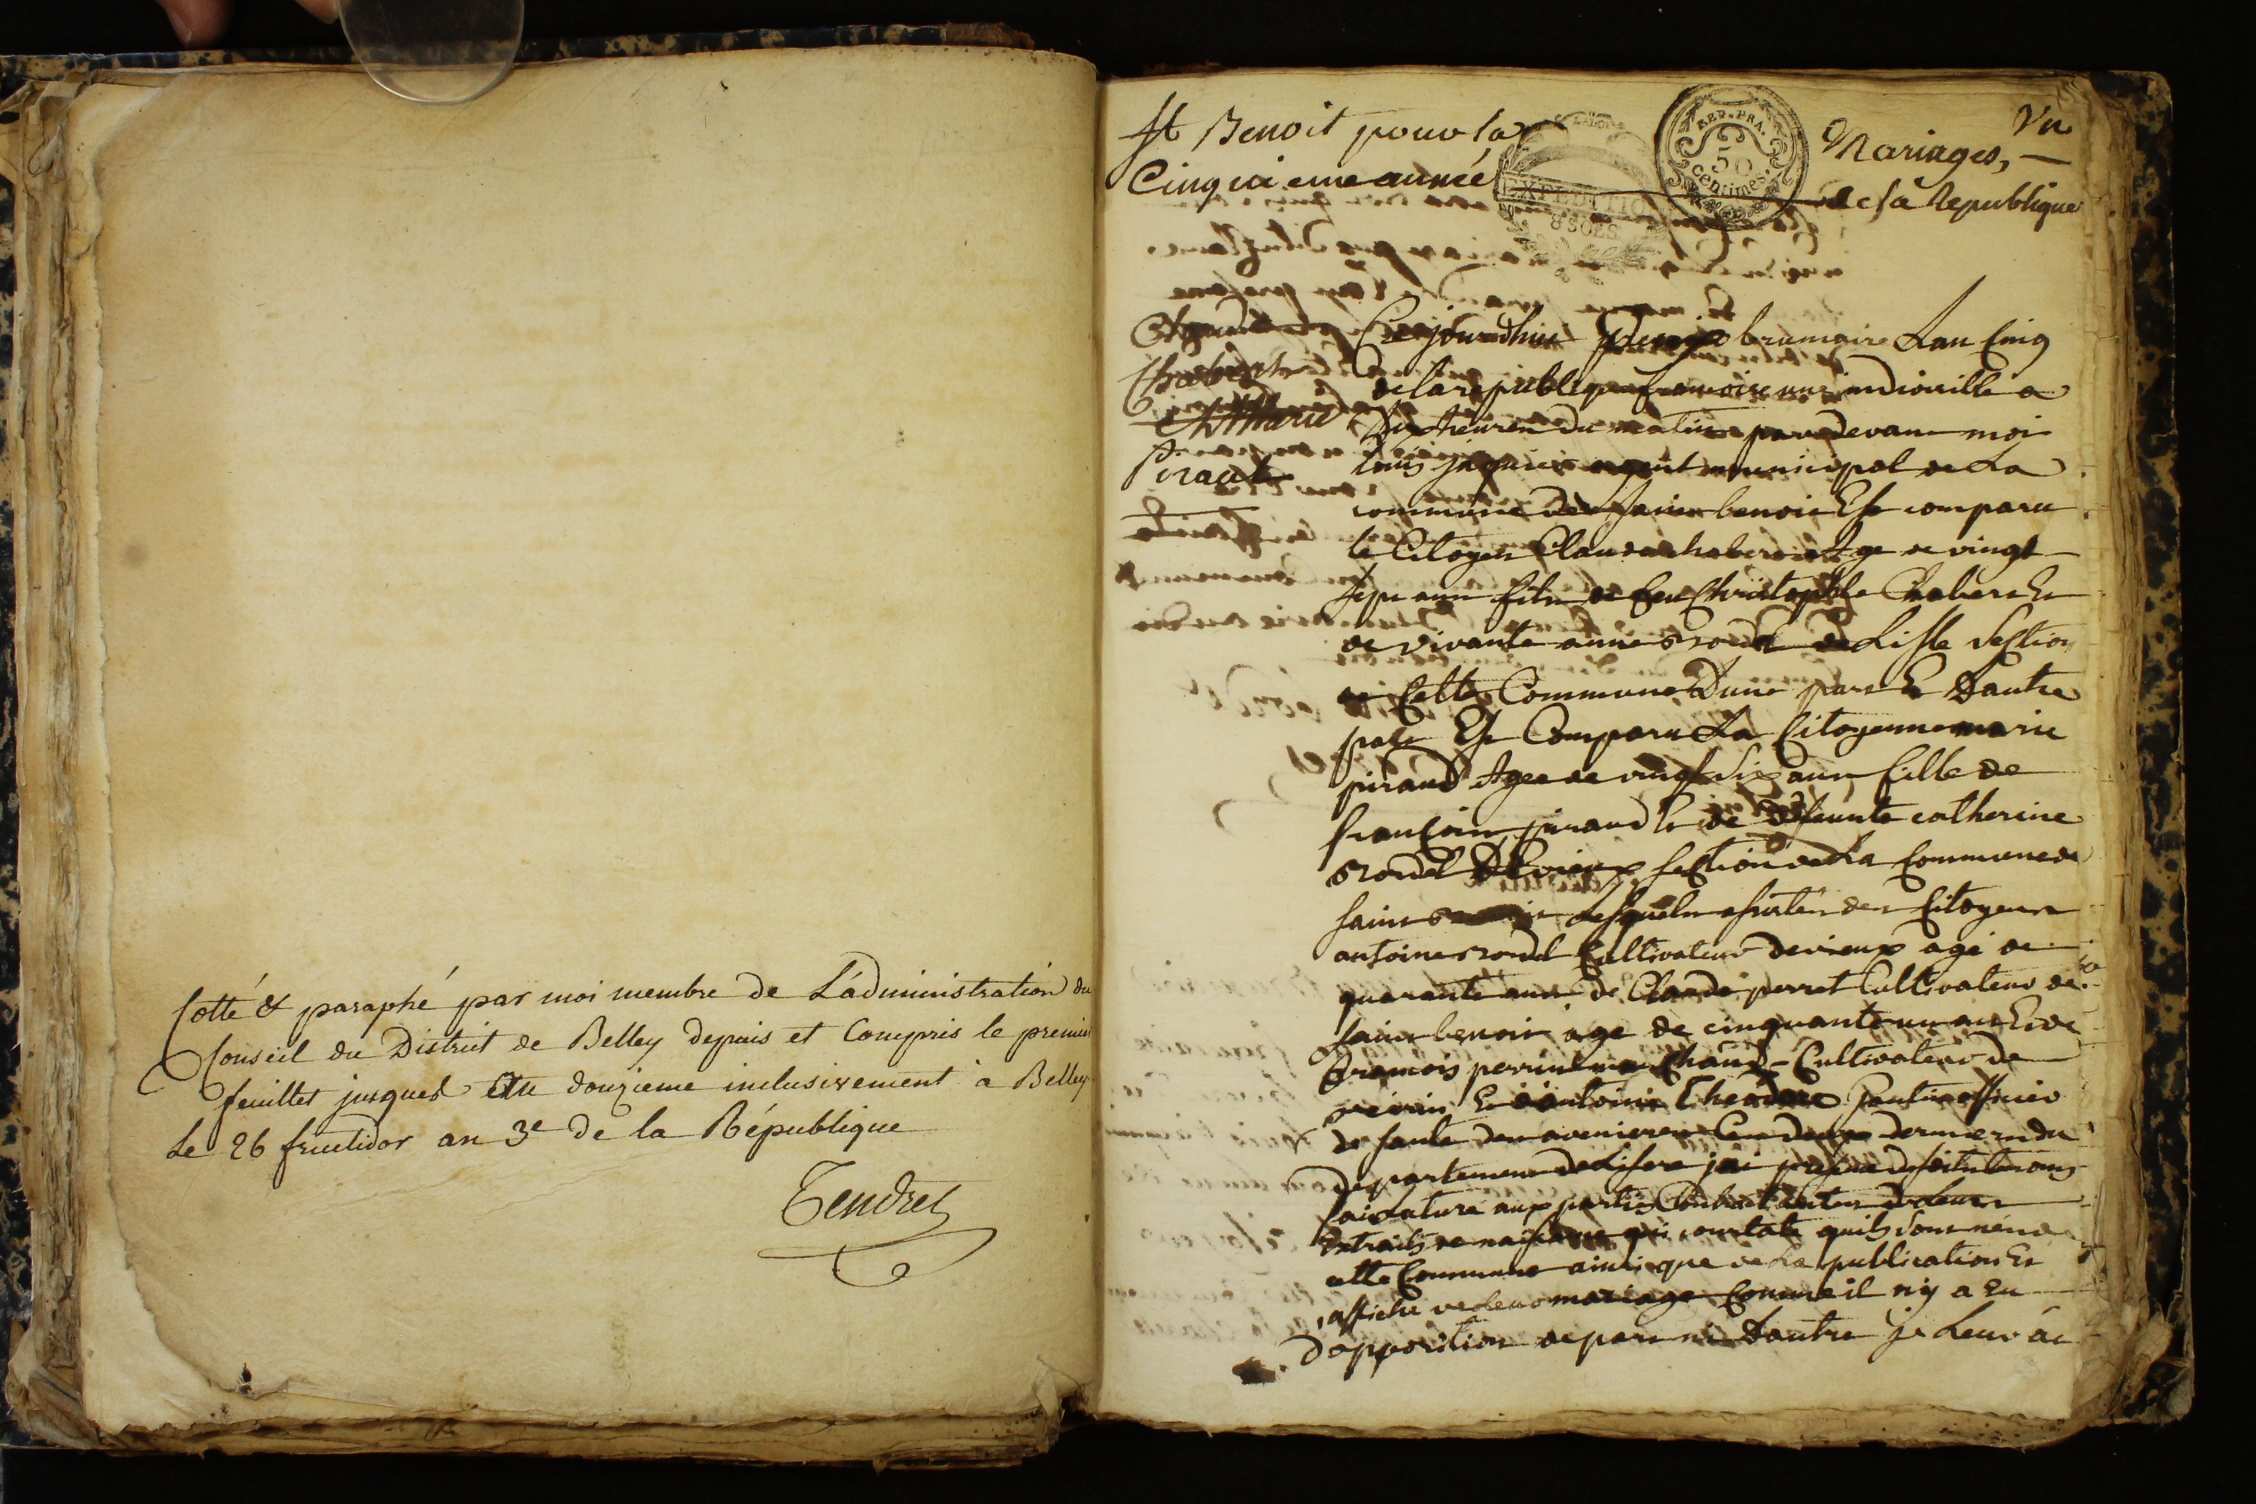 Cotté & paraphé par moi membre de L'administration du
Conseil du District de Belley depuis et Compris le premier
feuillet jusques au douzieme inclusivement à Belley
Le 26 fructidor an 3e de la République
Tendret
St Benoit pour la
Cinquieme année
EXPEDITIO
REP. FRA.
50
centimes.
Mariages,
Un
de la Republique
Chabert
Marie
Piraud
Cejourdhui brumaire Lan Cinq
de la republique francoise une indivisible a
dix heures du matin pardevant moi
louis agent municipal de La
commune de Saint benoit Est comparu
le Citoyen Claude chabert Age de vingt
sept ans fils de feu Christophle Chabert Et
de vivante anne de Lisle Section
de Cette Commune Dune part Et Dautre
part Est Comparu La Citoyenne marie
piraud Agee de vingt Six ans fille de
francois piraud Et de defeunte catherine
section de La Commune de
Saint lesquels assistés des Citoyens
antoine Cultivateur devieux agé de
quarante ans de Claude perret Cultivateur de
Saint benoit age de cinquante un ans Et de
francois perrin Cultivateur de
Et antoine officier
de Santé des avenieres Ces deux derniers du
departement de Lisere jai
faire Lature aux parties Contractantes de Leurs
Extraits de naissance qui constate quils Sont nés de
cette Commune ainsi que de La publication Et
affiche de Leur mariage Comme il ny a Eu
Dopposition de part ni Dautre je Leur ai